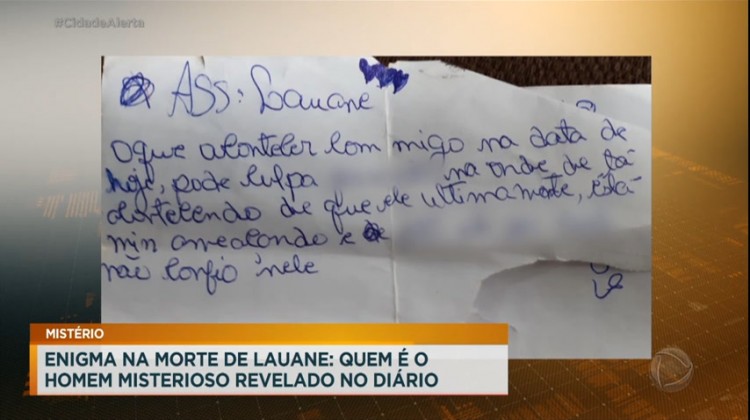 #CidadeAlerta
ASS: Lauane
Oque aconteler com migo na data de
hoje, pode culpa na onde de tá
de que ele ultimamente, está
min amealando e
não confio nele
MISTÉRIO
ENIGMA NA MORTE DE LAUANE: QUEM É O
HOMEM MISTERIOSO REVELADO NO DIÁRIO